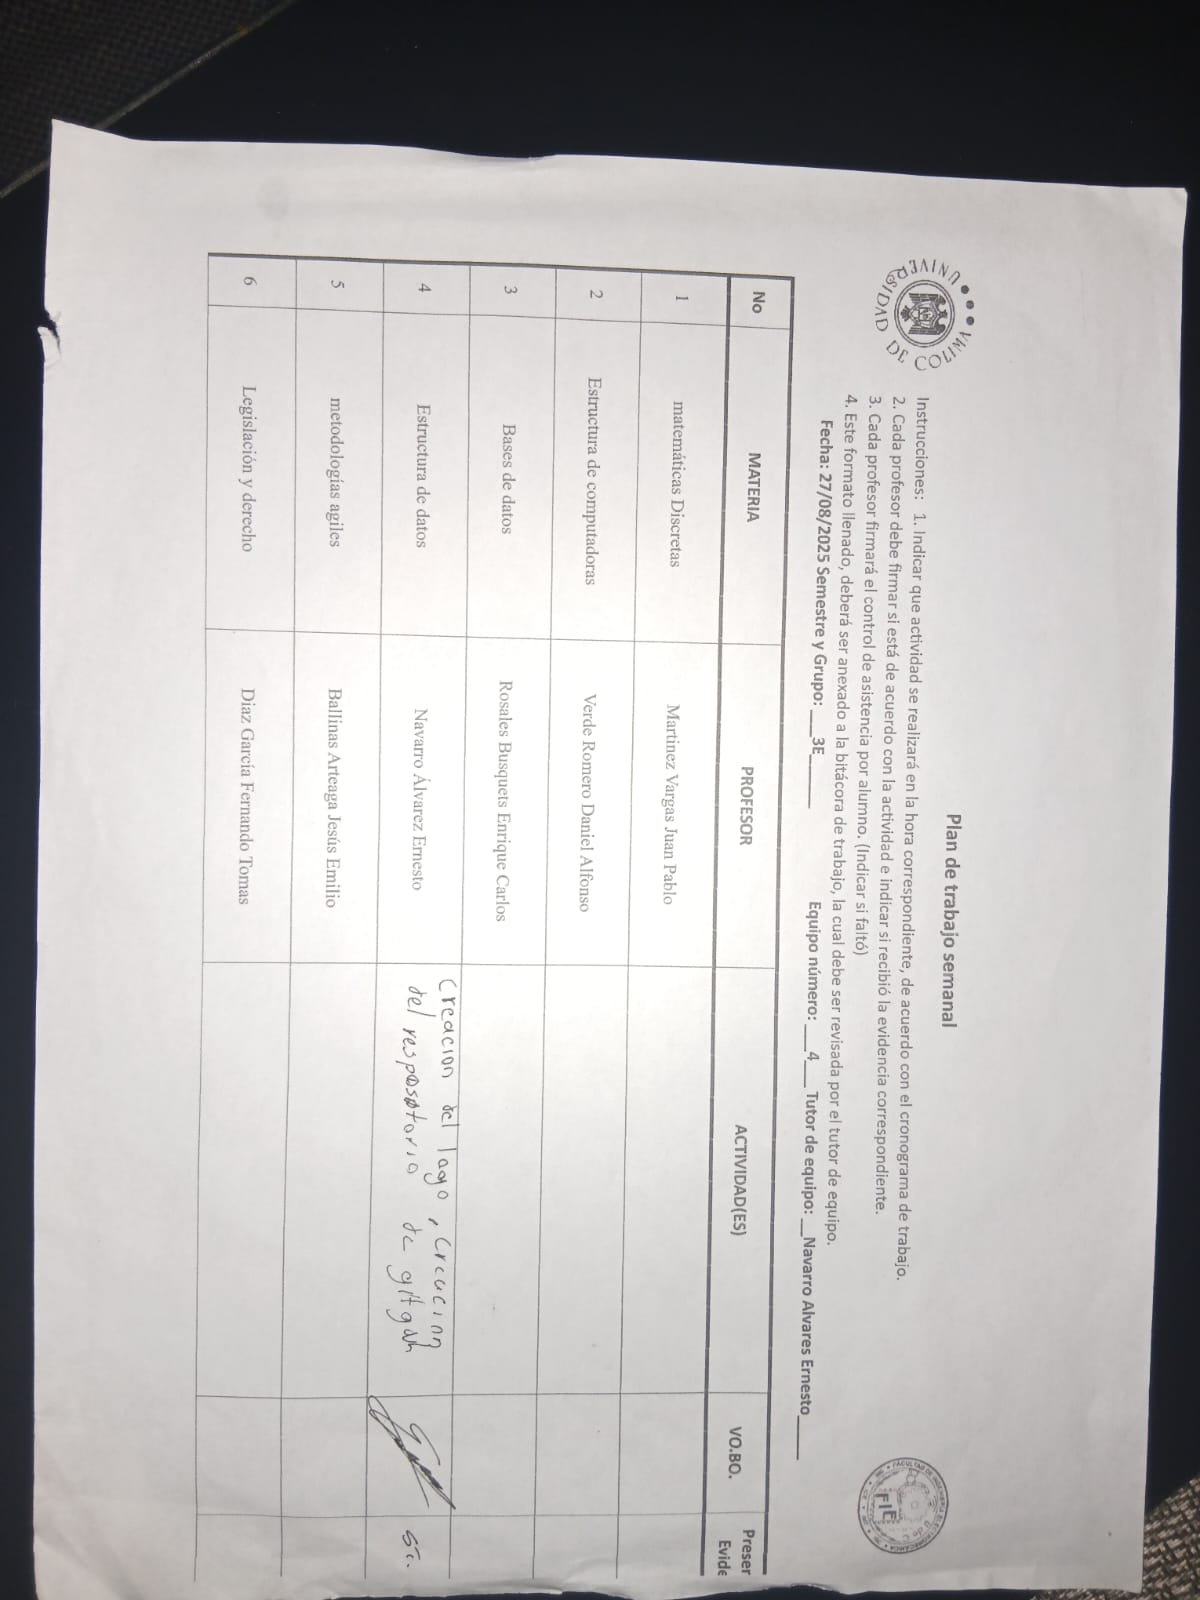 Plan de trabajo semanal
UNIVERSIDAD DE COLIMA
Instrucciones: 1. Indicar que actividad se realizará en la hora correspondiente, de acuerdo con el cronograma de trabajo.
2. Cada profesor debe firmar si está de acuerdo con la actividad e indicar si recibió la evidencia correspondiente.
3. Cada profesor firmará el control de asistencia por alumno. (Indicar si faltó)
4. Este formato llenado, deberá ser anexado a la bitácora de trabajo, la cual debe ser revisada por el tutor de equipo.
FACULTAD DE INGENIERIA ELECTROMECANICA
FIE
Fecha: 27/08/2025 Semestre y Grupo: ___3E_____ Equipo número: ___4___ Tutor de equipo: __Navarro Alvares Ernesto____
No MATERIA PROFESOR ACTIVIDAD(ES) VO.BO. Preser
Evide
1 matemáticas Discretas Martinez Vargas Juan Pablo
2 Estructura de computadoras Verde Romero Daniel Alfonso
3 Bases de datos Rosales Busquets Enrique Carlos
4 Estructura de datos Navarro Álvarez Ernesto Creacion del logo, creacion
del de si.
5 metodologías agiles Ballinas Arteaga Jesús Emilio
6 Legislación y derecho Diaz García Fernando Tomas